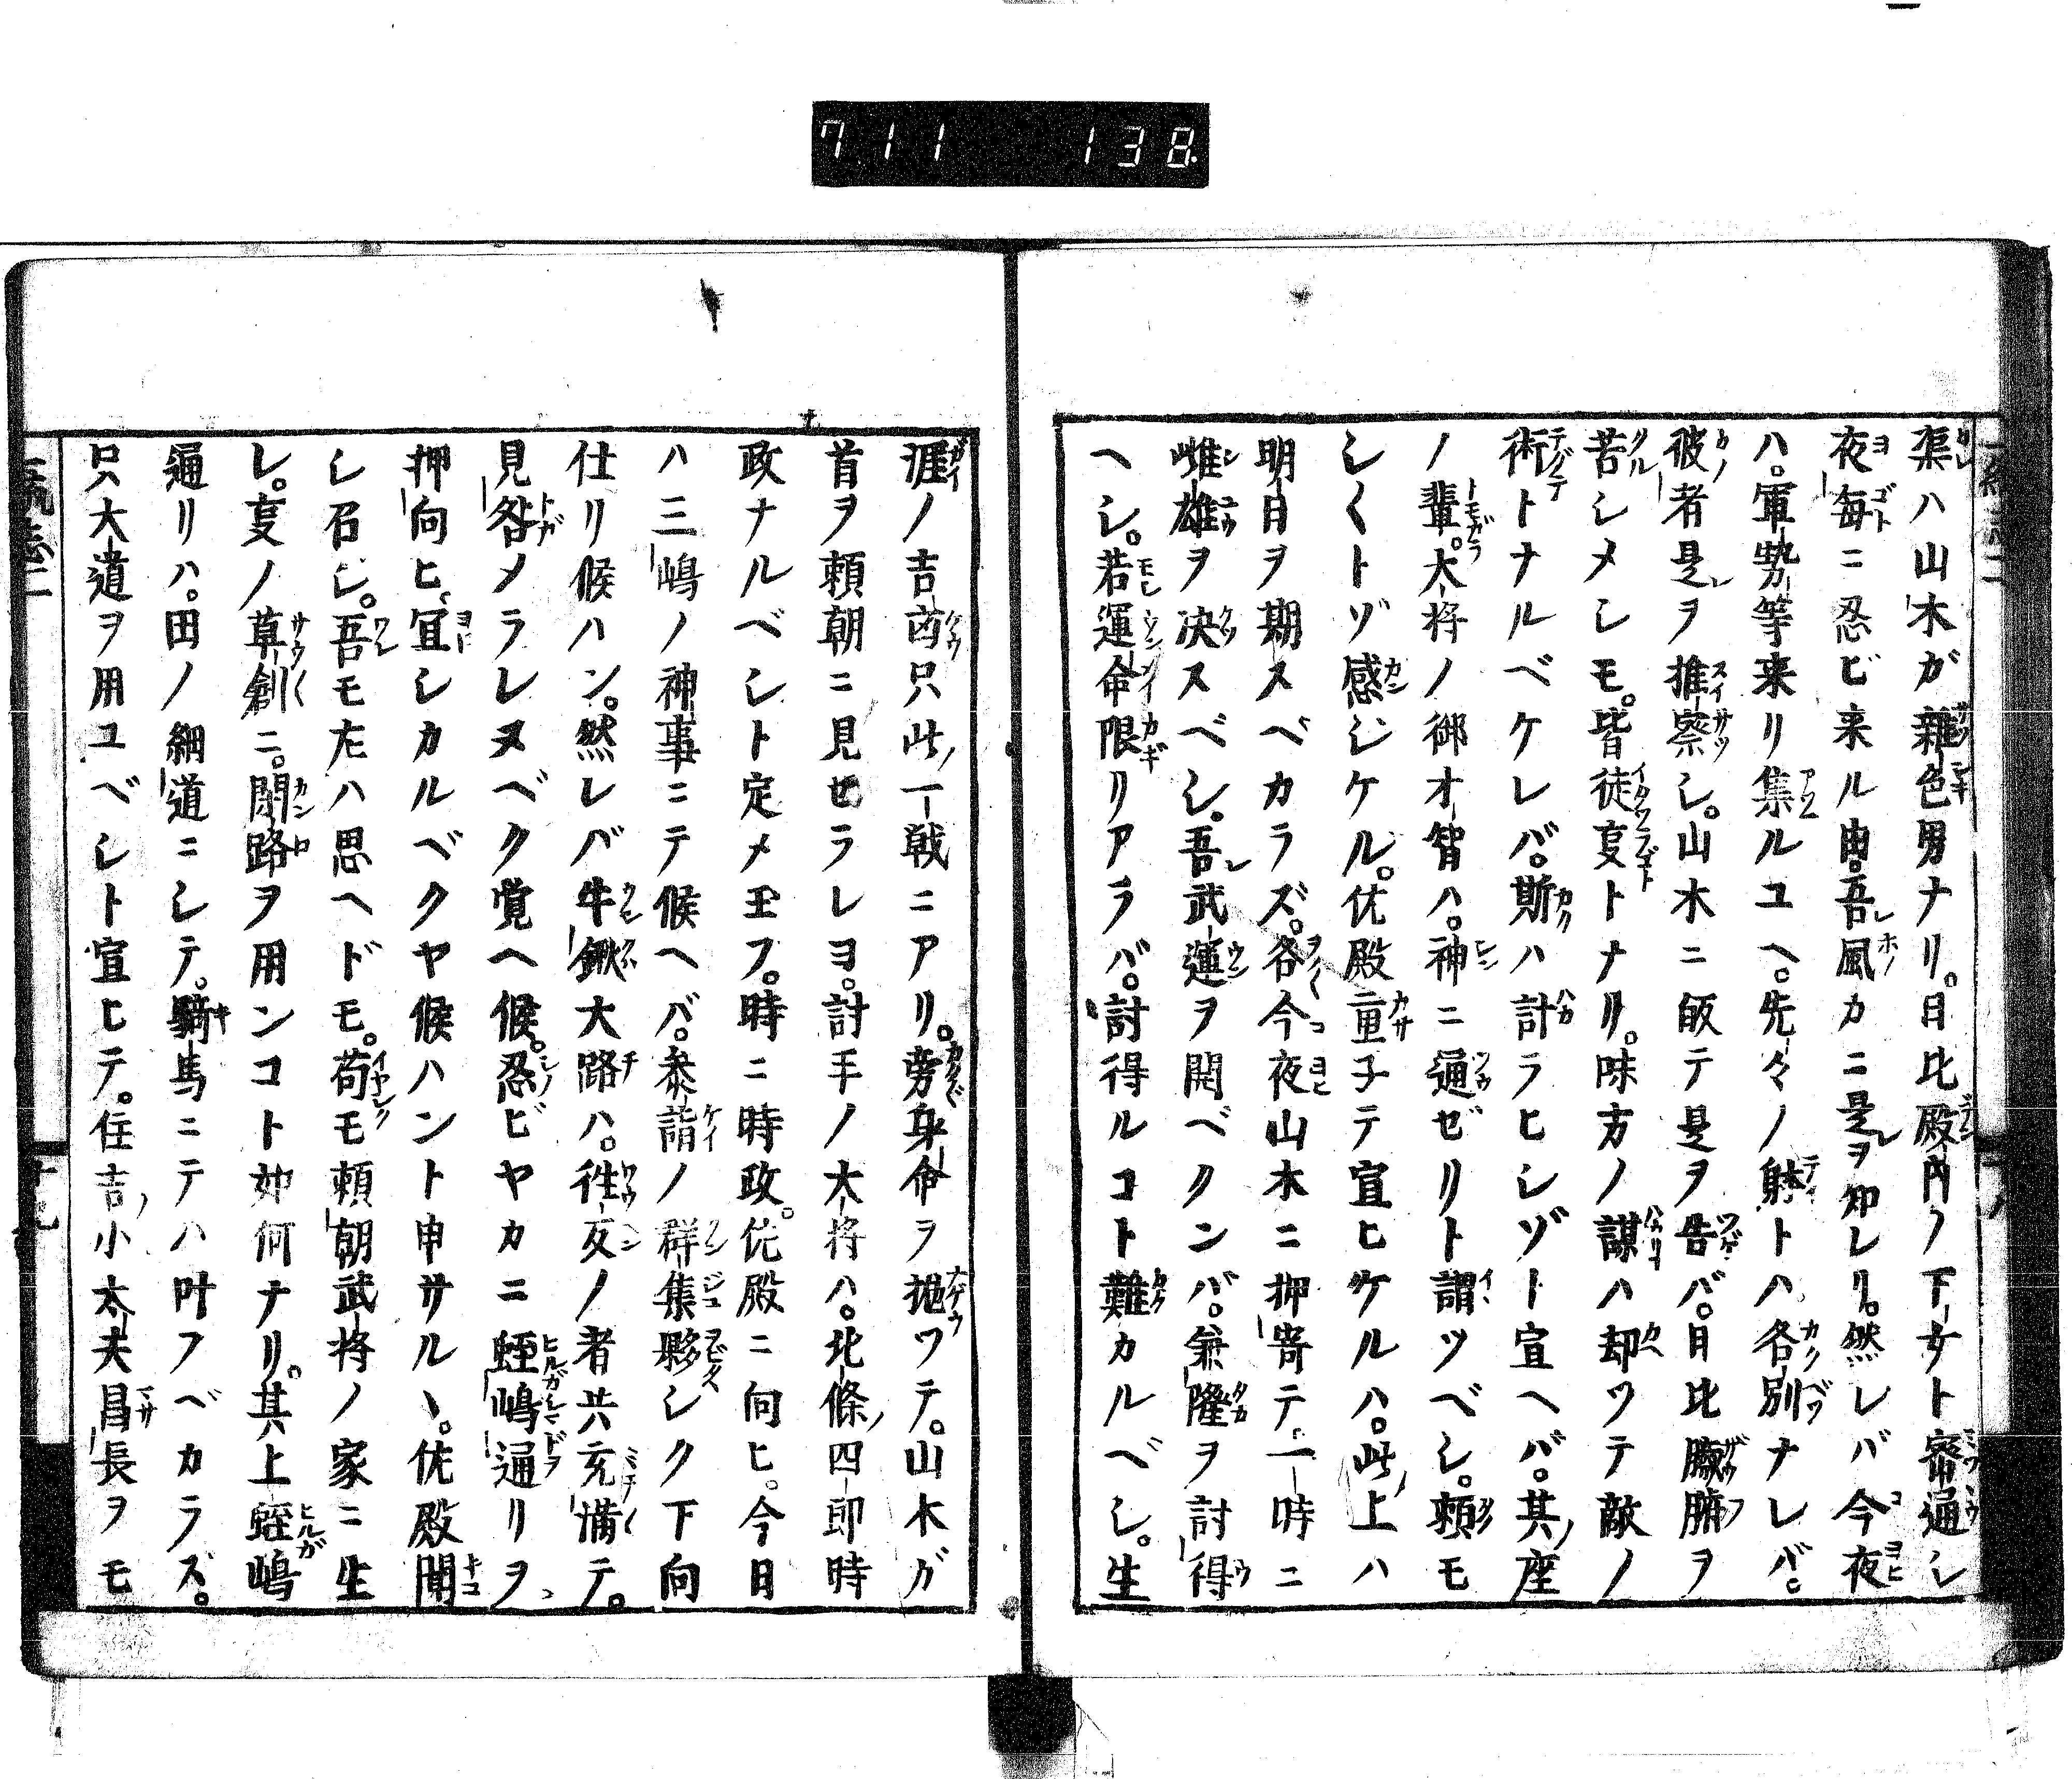 711 138
渠ハ山木ガ雜色男ナリ。日比殿内ノ下女ト密通シ
夜毎ニ忍ビ来ル由。吾風カニ是ヲ知レリ。然レバ今夜
ハ。軍勢等来リ集ルユヘ。先々ノ躰トハ各別ナレバ。
彼者是ヲ推察シ。山木ニ皈テ是ヲ告バ。日比臓腑ヲ
苦シメシモ。皆徒叓トナリ。味方ノ謀ハ却ツテ敵ノ
術トナルベケレバ。斯ハ計ラヒシゾト宣ヘバ。其座
ノ輩。大将ノ御才智ハ。神ニ通ゼリト謂ツベシ。頼モ
シ〱トゾ感ジケル。佐殿重子テ宣ヒケルハ。此上ハ
明日ヲ期スベカラズ。各今夜山木ニ押寄テ。一時ニ
雌雄ヲ决スベシ。吾武運ヲ開ベクンバ。兼隆ヲ討得
ヘシ。若運命限リアラバ。討得ルコト難カルベシ。生
涯ノ吉凶只此一戦ニアリ。旁身命ヲ抛ツテ。山木ガ
首ヲ頼朝ニ見セラレヨ。討手ノ大将ハ。北條四郎時
政ナルベシト定メ玉フ。時ニ時政。佐殿ニ向ヒ。今日
ハ三嶋ノ神事ニテ候ヘバ。参詣ノ群集夥シク下向
仕リ候ハン。然レバ牛鍬大路ハ。徃反ノ者共充滿テ。
見咎メラレヌベク覚ヘ候。忍ビヤカニ蛭嶋通リヲ
押向ヒ、宜シカルベクヤ候ハント申サル丶。佐殿聞
シ召シ。吾モ左ハ思ヘドモ。荷モ頼朝武将ノ家ニ生
レ。叓ノ草創ニ。閑路ヲ用ンコト如何ナリ。其上蛭嶋
通リハ。田ノ細道ニシテ。騎馬ニテハ叶フベカラズ。
只大道ヲ用ユベシト宣ヒテ。住吉小太夫昌長ヲモ